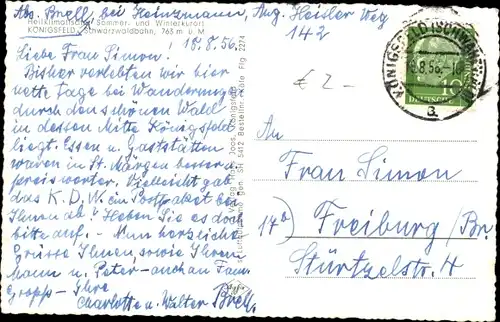 Abs. Brell, bei Heinzmann, Aug. Heisler Weg
142
Heilklimatischer Sommer- und Winterkurort
KÖNIGSFELD / Schwarzwaldbahn, 763 m ü. M
18.8.56.
Liebe Frau Simon!
Bisher verlebten wir hier
nette Tage bei Wanderungen
durch den schönen Wald
in dessen Mitte Königsfeld
liegt. Essen u. Gaststätten
waren in St. Märgen besser u.
preiswerter. Vielleicht gab
das K.D.W. ein Postpaket bei
Ihnen ab? Heben Sie es doch
bitte auf. - Nun herzliche
Grüsse Ihnen, sowie Ihrem
Mann u. Peter - auch an Fam.
Gropp - Ihre
Charlotte u. Walter Brell.
Verlag Joos, Königsfeld
SH 5412 Bestellnr. Kake Flg 2274
£ 2 -
KÖNIGSFELD (SCHWARZWALD)
18.8.56.
a
10
DEUTSCHE
An
Frau Simon
17b Freiburg/Br.
Stürtzelstr. 4